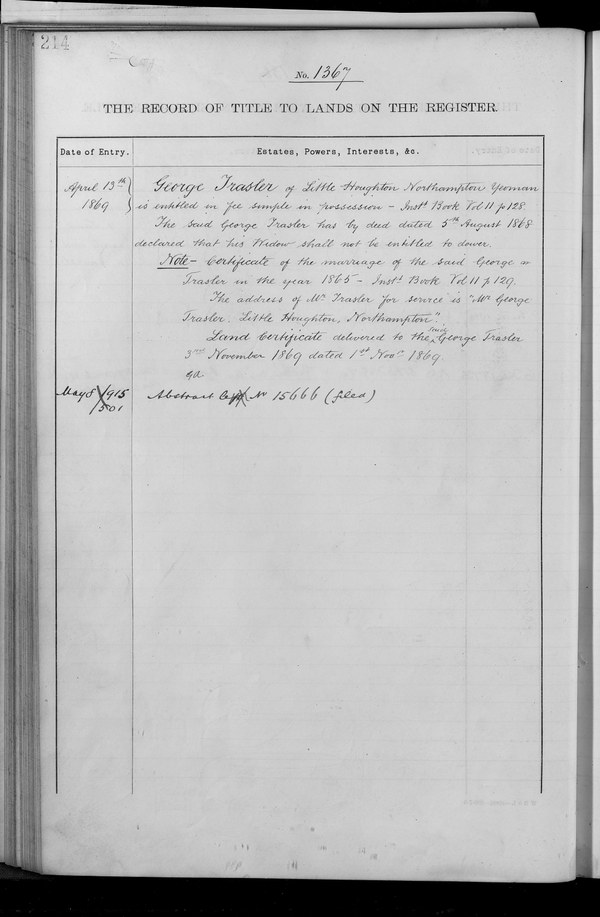 214
No. 1367
THE RECORD OF TITLE TO LANDS ON THE REGISTER.
Date of Entry.
Estates, Powers, Interests, &c.
April 13th
1869
George Trasler of Little Houghton Northampton Yeoman
is entitled in fee simple in possession - Instt Book Vol 11 p 128.
The said George Trasler has by deed dated 5th August 1868
declared that his Widow shall not be entitled to dower.
Note - Certificate of the marriage of the said George
Trasler in the year 1865 - Instt Book Vol 11 p 129.
The address of Mr Trasler for service is "Mr George
Trasler, Little Houghton, Northampton".
Land Certificate delivered to the said George Trasler
3rd November 1869 dated 1st Novr 1869.
May 8 1915
501
Abstract No 15666 (filed)